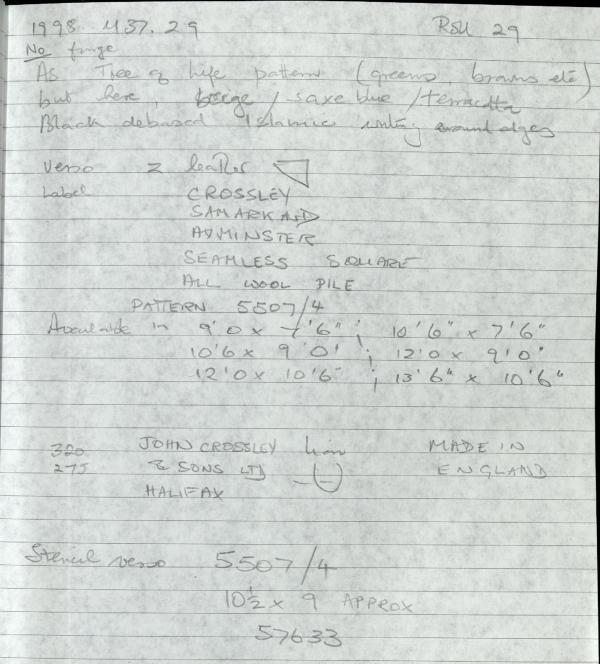 1998.M37.29 RSU 29
No fringe
As Tree of Life pattern (greens, browns etc)
but here, beige/saxe blue/terracotta
Black debased Islamic writing around edges
Verso 2 leather
Label CROSSLEY
SAMARKAND
AXMINSTER
SEAMLESS SQUARE
ALL WOOL PILE
PATTERN 5507/4
Available in 9'0 x 7'6" ; 10'6" x 7'6"
10'6 x 9'0" ; 12'0 x 9'0"
12'0 x 10'6" ; 13'6" x 10'6"
320 JOHN CROSSLEY lion MADE IN
275 & SONS LTD ENGLAND
HALIFAX
Stencil verso 5507/4
10½ x 9 APPROX
57633